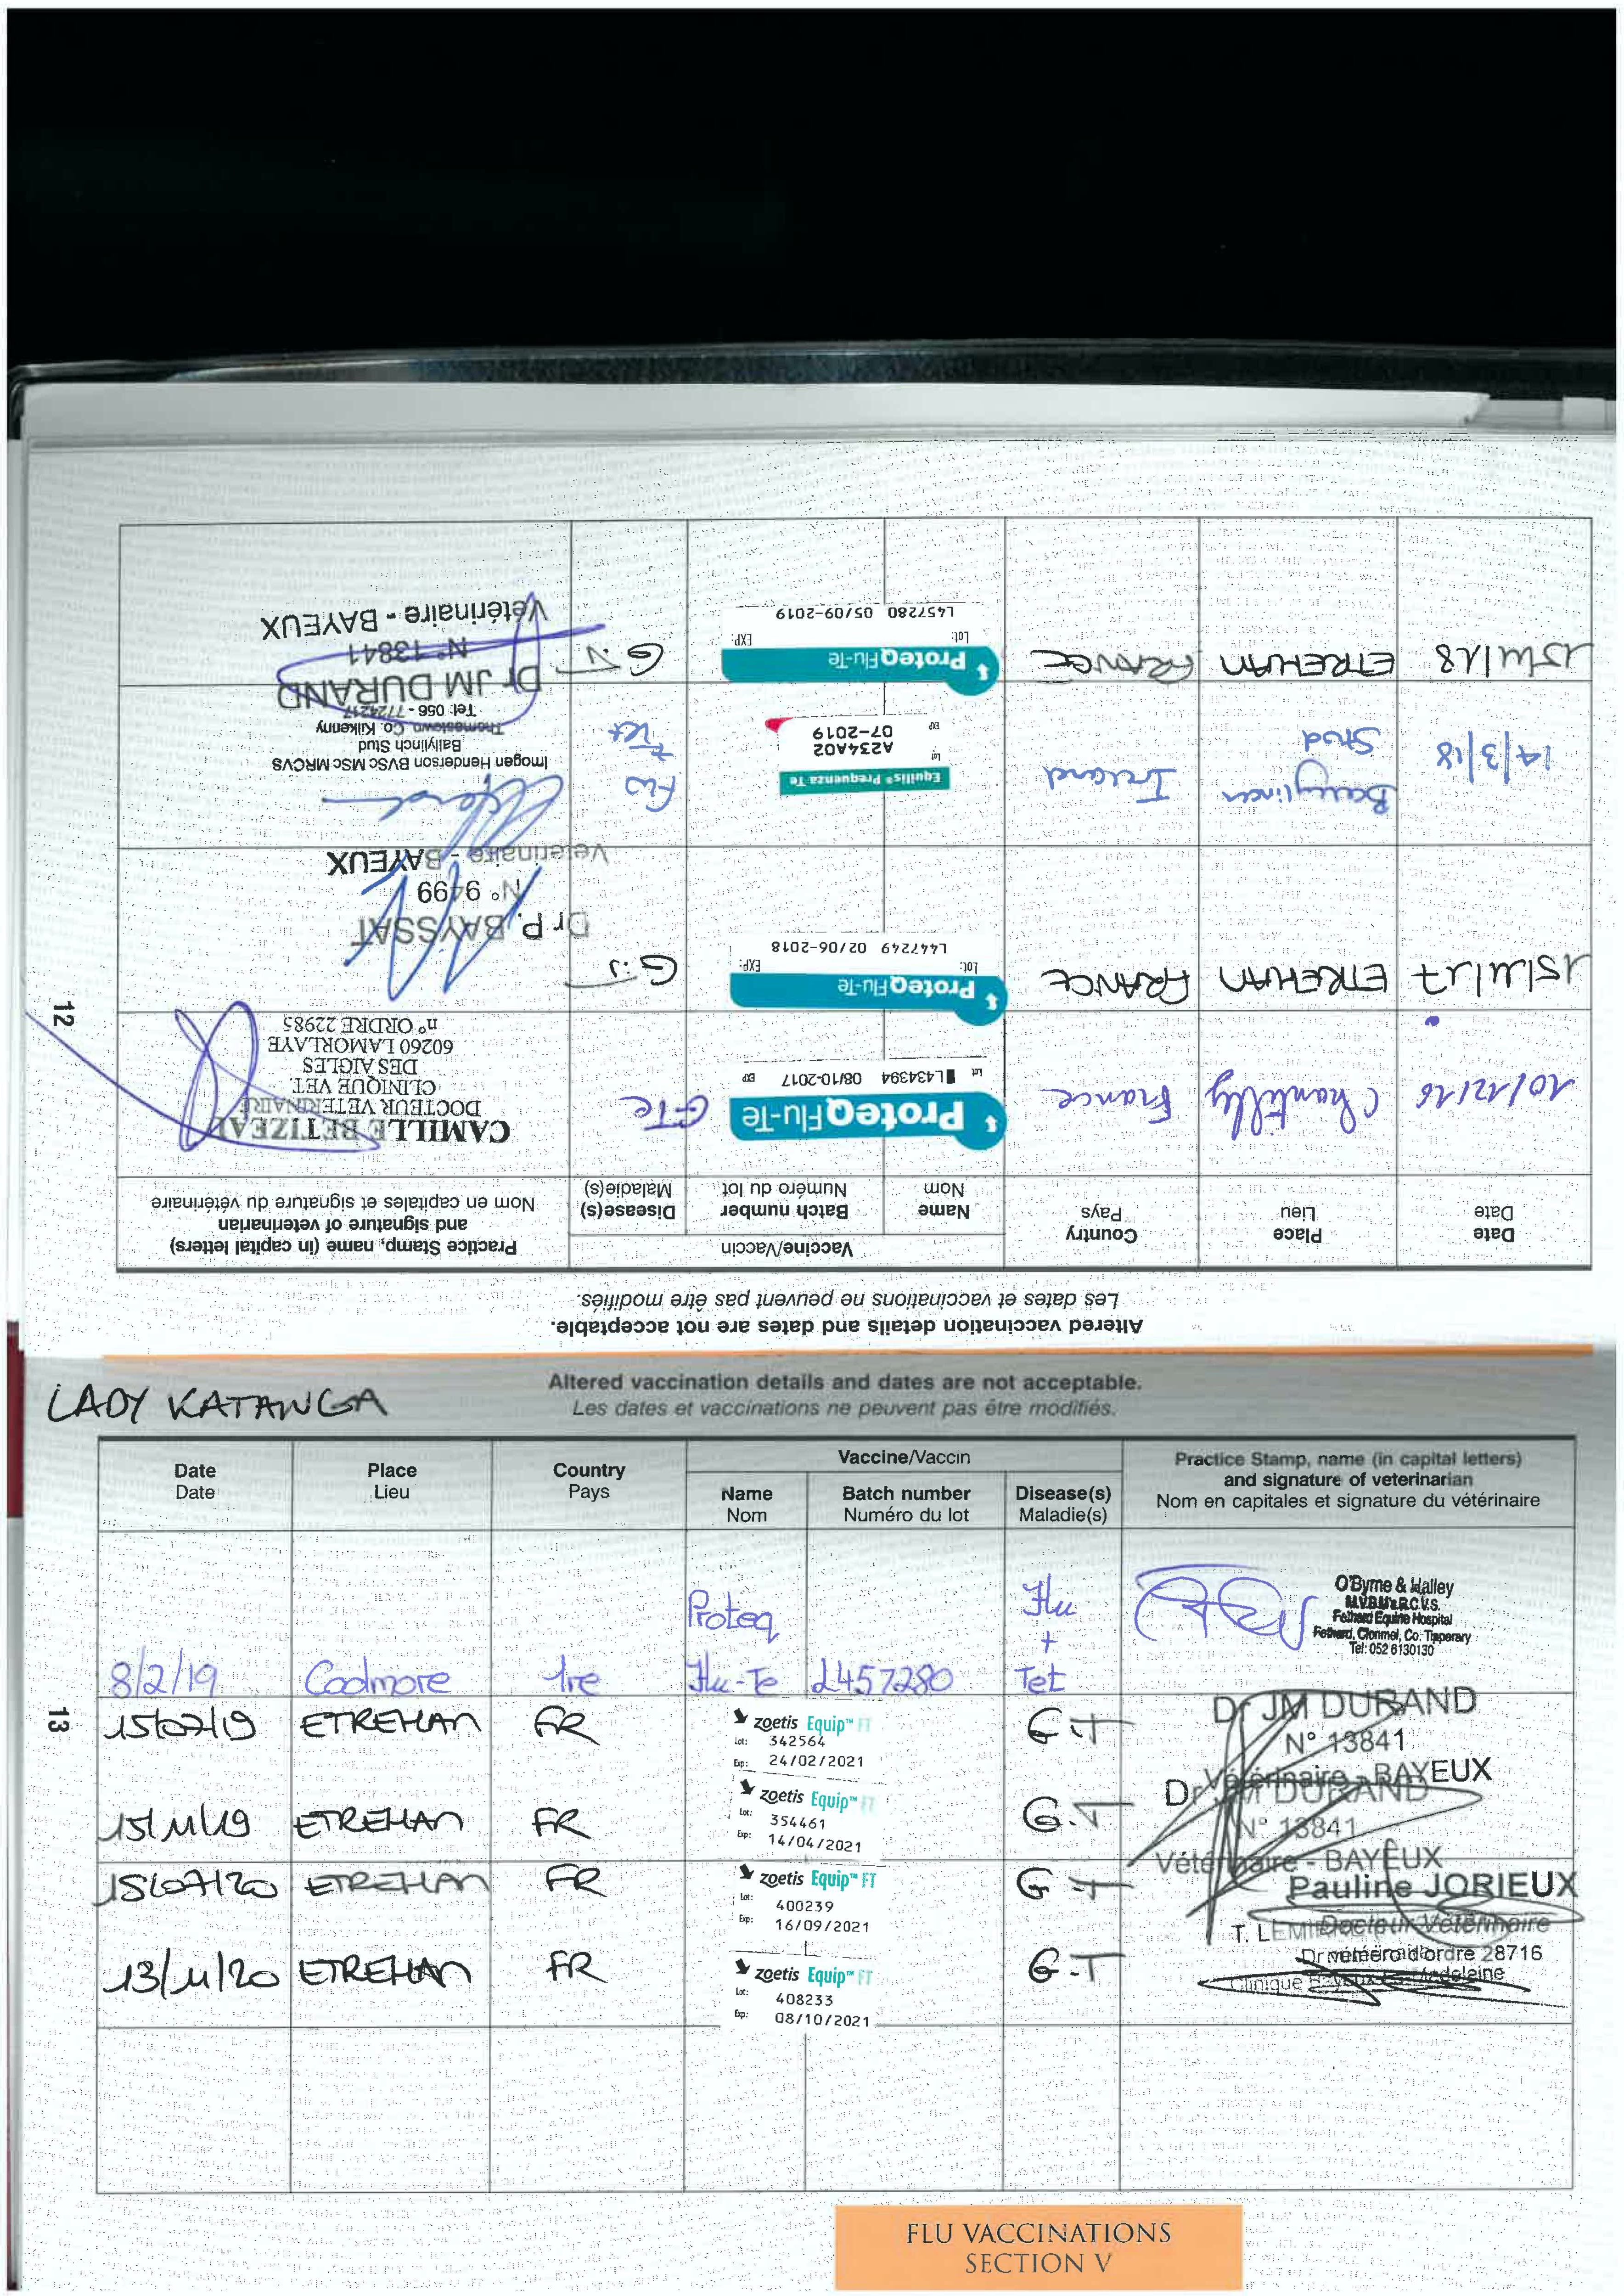 12
Altered vaccination details and dates are not acceptable.
Les dates et vaccinations ne peuvent pas être modifiés.
Date Place Country Vaccine/Vaccin Practice Stamp, name (in capital letters)
Date Lieu Pays Name Batch number Disease(s) and signature of veterinarian
Nom Numéro du lot Maladie(s) Nom en capitales et signature du vétérinaire
10/12/16 Chantilly France ProteqFlu-Te GTe
Lot L434394 08/10-2017 EXP
CAMILLE BETIZEAU
DOCTEUR VETERINAIRE
CLINIQUE VET.
DES AIGLES
60260 LAMORLAYE
n° ORDRE 22985
15/11/17 ETREHAN FRANCE ProteqFlu-Te G.T
Lot: EXP:
L447249 02/06-2018
Dr P. BAYSSAT
N° 9499
Vétérinaire - BAYEUX
14/3/18 Ballylinch Stud Ireland Equilis® Prequenza Te Flu Tet
Lot A234A02
EXP 07-2019
Imogen Henderson BVSc MSc MRCVS
Ballylinch Stud
Thomastown Co. Kilkenny
Tel: 056 - 7724217
15/11/18 ETREHAN FRANCE ProteqFlu-Te G.T
Lot: EXP:
L457280 05/09-2019
Dr JM DURAND
N° 13841
Vétérinaire - BAYEUX
LADY KATANGA
Altered vaccination details and dates are not acceptable.
Les dates et vaccinations ne peuvent pas être modifiés.
Date Place Country Vaccine/Vaccin Practice Stamp, name (in capital letters)
Date Lieu Pays Name Batch number Disease(s) and signature of veterinarian
Nom Numéro du lot Maladie(s) Nom en capitales et signature du vétérinaire
8/2/19 Coolmore Ire Proteq Flu-Te L457280 Flu + Tet
O'Byrne & Halley
M.V.B. M.R.C.V.S.
Fethard Equine Hospital
Fethard, Clonmel, Co. Tipperary
Tel: 052 6130130
15/07/19 ETREHAN FR zoetis Equip™ FT G.T
Lot: 342564
Exp: 24/02/2021
Dr JM DURAND
N° 13841
Vétérinaire - BAYEUX
15/11/19 ETREHAN FR zoetis Equip™ FT G.T
Lot: 354461
Exp: 14/04/2021
Dr JM DURAND
N° 13841
Vétérinaire - BAYEUX
15/07/20 ETREHAN FR zoetis Equip™ FT G.T
Lot: 400239
Exp: 16/09/2021
Pauline JORIEUX
Docteur Vétérinaire
numéro d'ordre 28716
13/11/20 ETREHAN FR zoetis Equip™ FT G.T
Lot: 408233
Exp: 08/10/2021
T.
Clinique
13
FLU VACCINATIONS
SECTION V